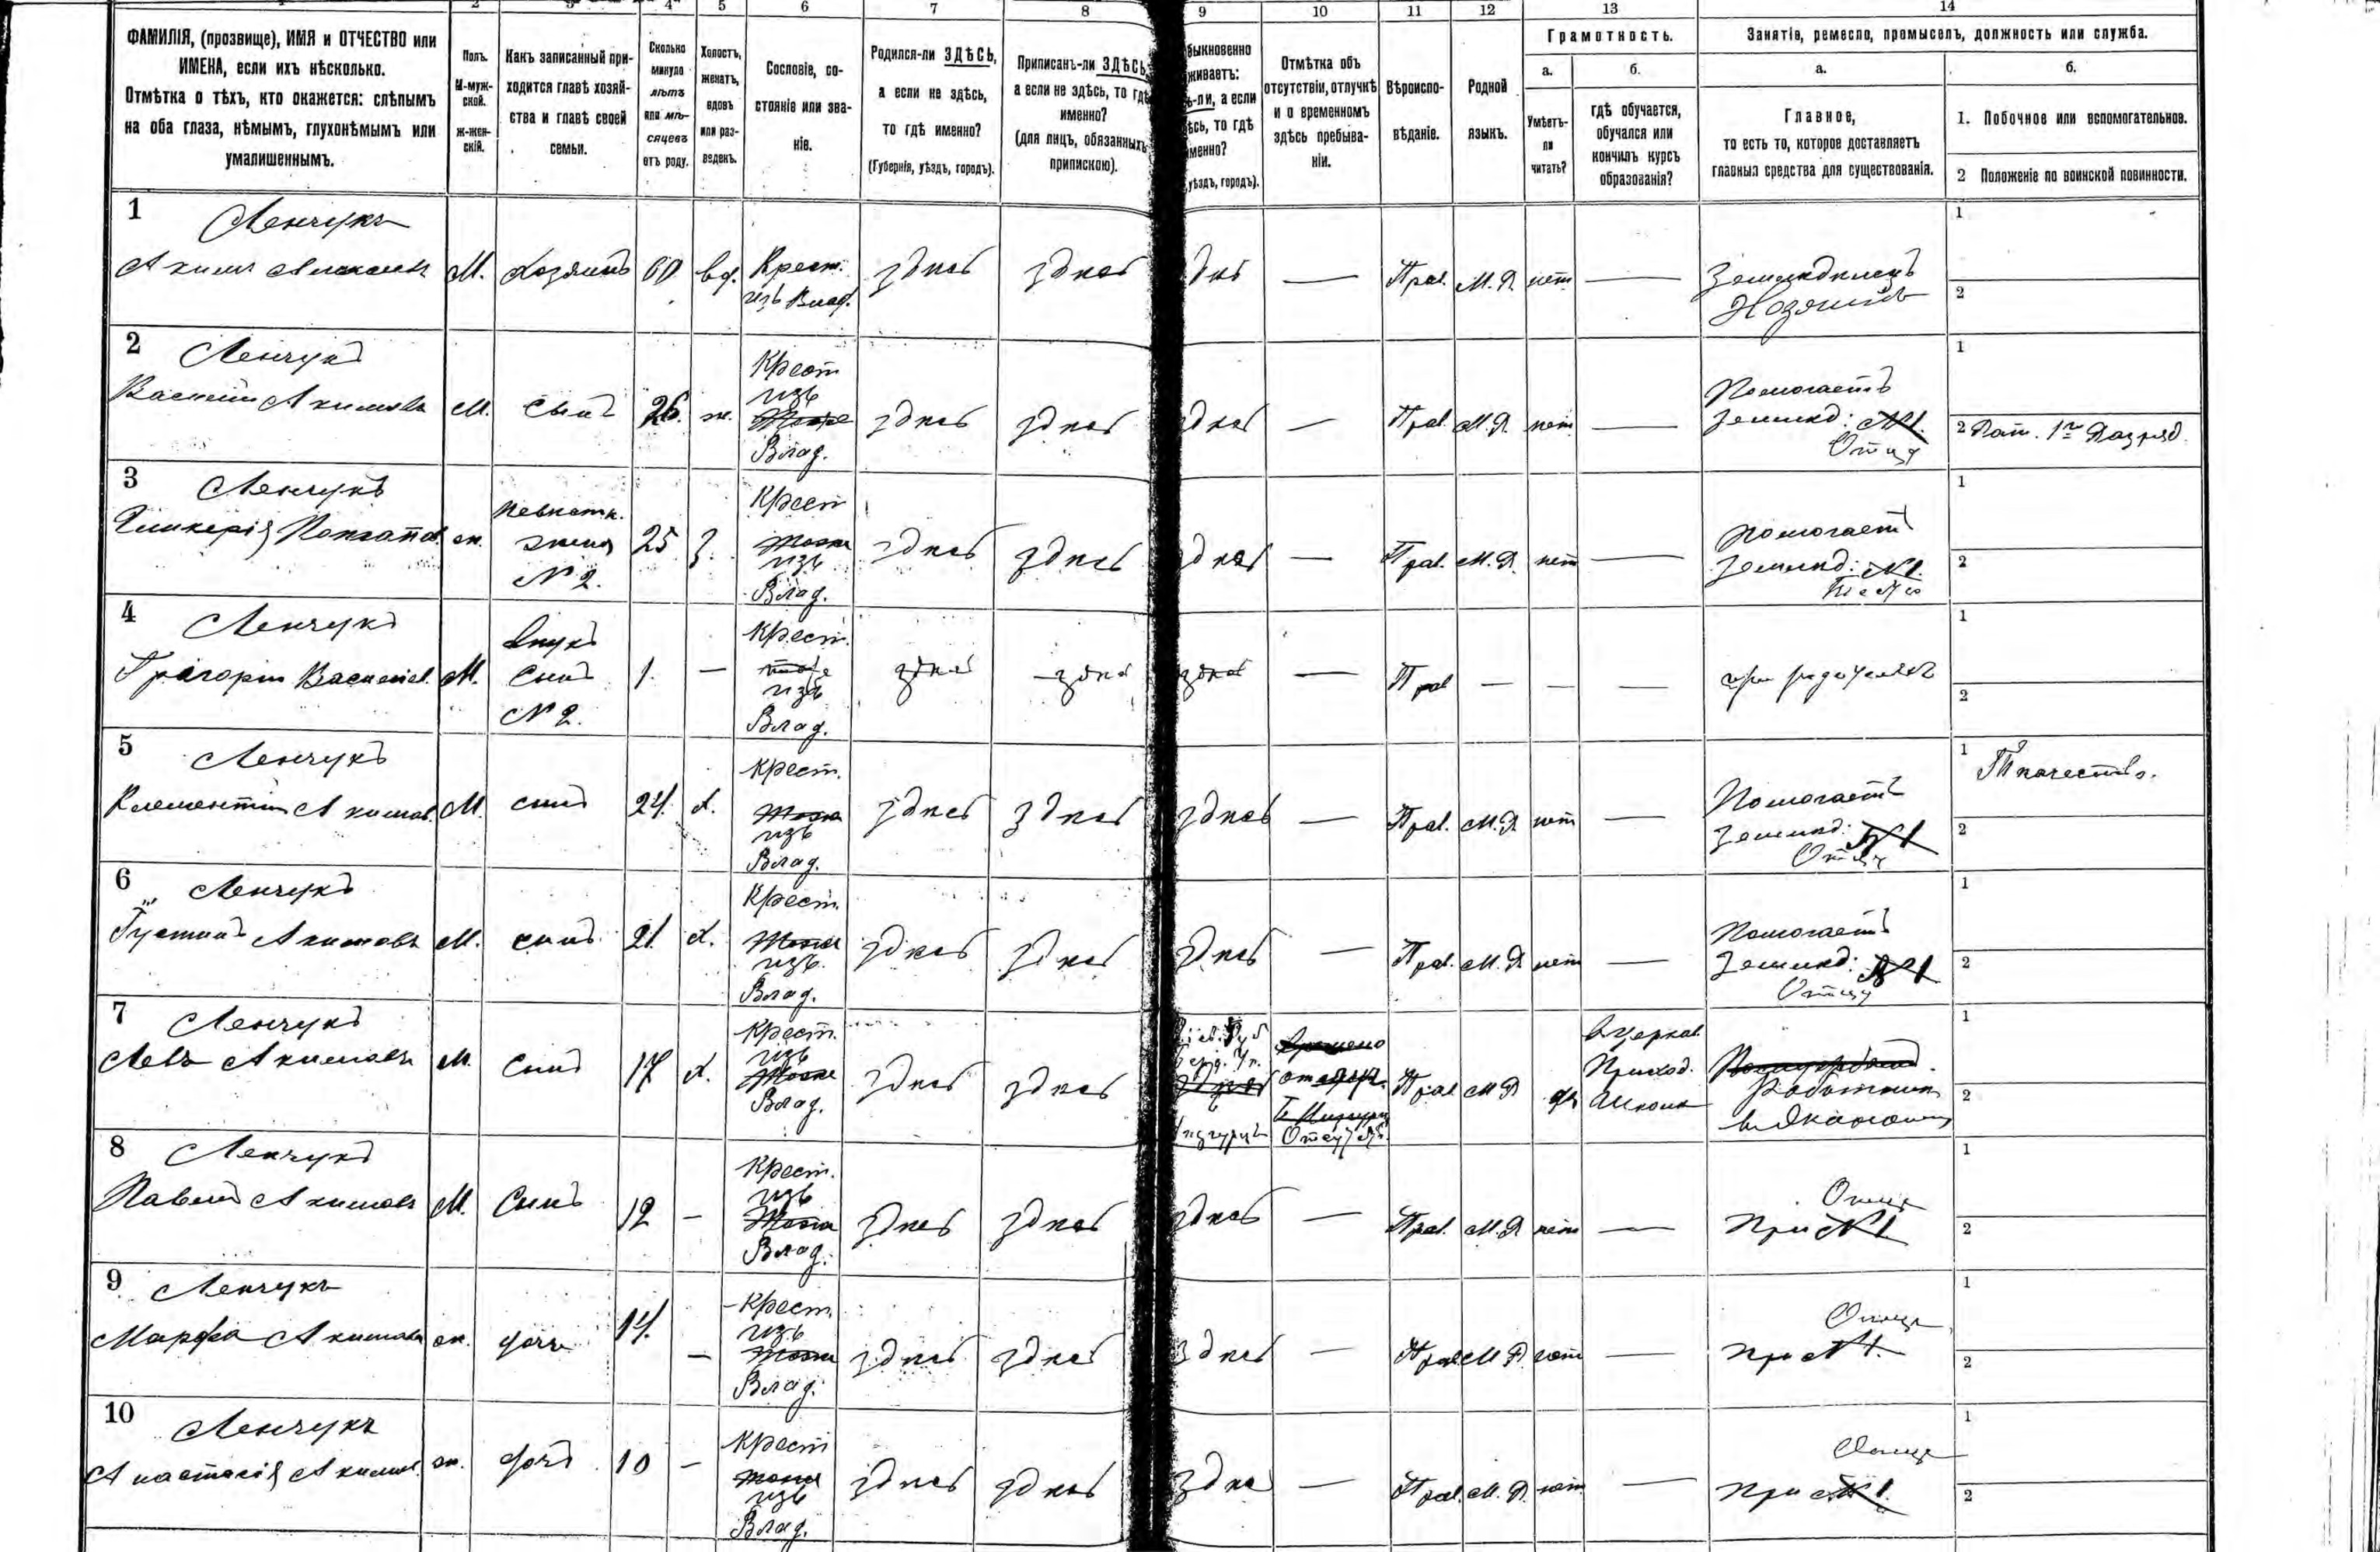 1 2 3 4 5 6 7 8 9 10 11 12 13 14
ФАМИЛІЯ, (прозвище), ИМЯ и ОТЧЕСТВО или
ИМЕНА, если ихъ нѣсколько.
Отмѣтка о тѣхъ, кто окажется: слѣпымъ
на оба глаза, нѣмымъ, глухонѣмымъ или
умалишеннымъ.
Полъ.
М-муж-
ской.
ж-жен-
скій.
Какъ записанный при-
ходится главѣ хозяй-
ства и главѣ своей
семьи.
Сколько
минуло
лѣтъ
или мѣ-
сяцевъ
отъ роду.
Холостъ,
женатъ,
вдовъ
или раз-
веденъ.
Сословіе, со-
стояніе или зва-
ніе.
Родился-ли ЗДѢСЬ,
а если не здѣсь,
то гдѣ именно?
(Губернія, уѣздъ, городъ).
Приписанъ-ли ЗДѢСЬ,
а если не здѣсь, то гдѣ
именно?
(для лицъ, обязанныхъ
припискою).
быкновенно
живаетъ:
ь-ли, а если
ѣсь, то гдѣ
менно?
уѣздъ, городъ).
Отмѣтка объ
отсутствіи, отлучкѣ
и о временномъ
здѣсь пребыва-
ніи.
Вѣроиспо-
вѣданіе.
Родной
языкъ.
Грамотность.
а.
Умѣетъ-
ли
читать?
б.
гдѣ обучается,
обучался или
кончилъ курсъ
образованія?
Занятіе, ремесло, промыселъ, должность или служба.
а.
Главное,
то есть то, которое доставляетъ
главныя средства для существованія.
б.
1. Побочное или вспомогательное.
2 Положеніе по воинской повинности.
1 Ленчукъ
Акимъ
М. Хозяинъ 60 вд. Крест. изъ Влад. здѣсь здѣсь — Прав. М. Р. нет — Земледѣлецъ Хозяинъ
1
2
2 Ленчукъ
Василій Акимовъ
М. Сынъ 26. ж. Крест изъ Влад. здѣсь здѣсь — Прав. М. Р. нет — Помогаетъ землед: Отцу
1
2 Рат. 1го Разряд.
3 Ленчукъ
невѣстк. жена № 2. 25 з. Крест изъ Влад. здѣсь здѣсь — Прав. М. Р. нет — Помогаетъ землед:
1
2
4 Ленчукъ
Григорій Василіев.
М. Внукъ Сынъ № 2. 1. — Крест. изъ Влад. здѣсь здѣсь здѣсь — Прав — — — при родителях
1
2
5 Ленчукъ
Климентій Акимов.
М. сынъ 24. х. Крест. изъ Влад. здѣсь здѣсь здѣсь — Прав. М. Р. нет — Помогаетъ землед: Отцу
1 Ткачество.
2
6 Ленчукъ
Густинъ Акимовъ
М. сынъ 21. х. Крест. изъ Влад. здѣсь здѣсь здѣсь — Прав. М. Р. нет — Помогаетъ землед: Отцу
1
2
7 Ленчукъ
Левъ Акимовъ
М. Сынъ 17 х. Крест. изъ Влад. здѣсь здѣсь Прав. М Р да Вцерков. Приход. Школѣ Работникъ
1
2
8 Ленчукъ
Павелъ Акимовъ
М. Сынъ 12 — Крест. изъ Влад. здѣсь здѣсь здѣсь — Прав. М. Р. нет — при Отцѣ
1
2
9 Ленчукъ
Марфа Акимова
ж. дочь 14. — Крест. изъ Влад. здѣсь здѣсь здѣсь — Прав. М Р. нет — при Отцѣ
1
2
10 Ленчукъ
Анастасія Акимов.
ж. дочь 10 — Крест изъ Влад. здѣсь здѣсь здѣсь — Прав. М. Р. нет — при Отцѣ
1
2